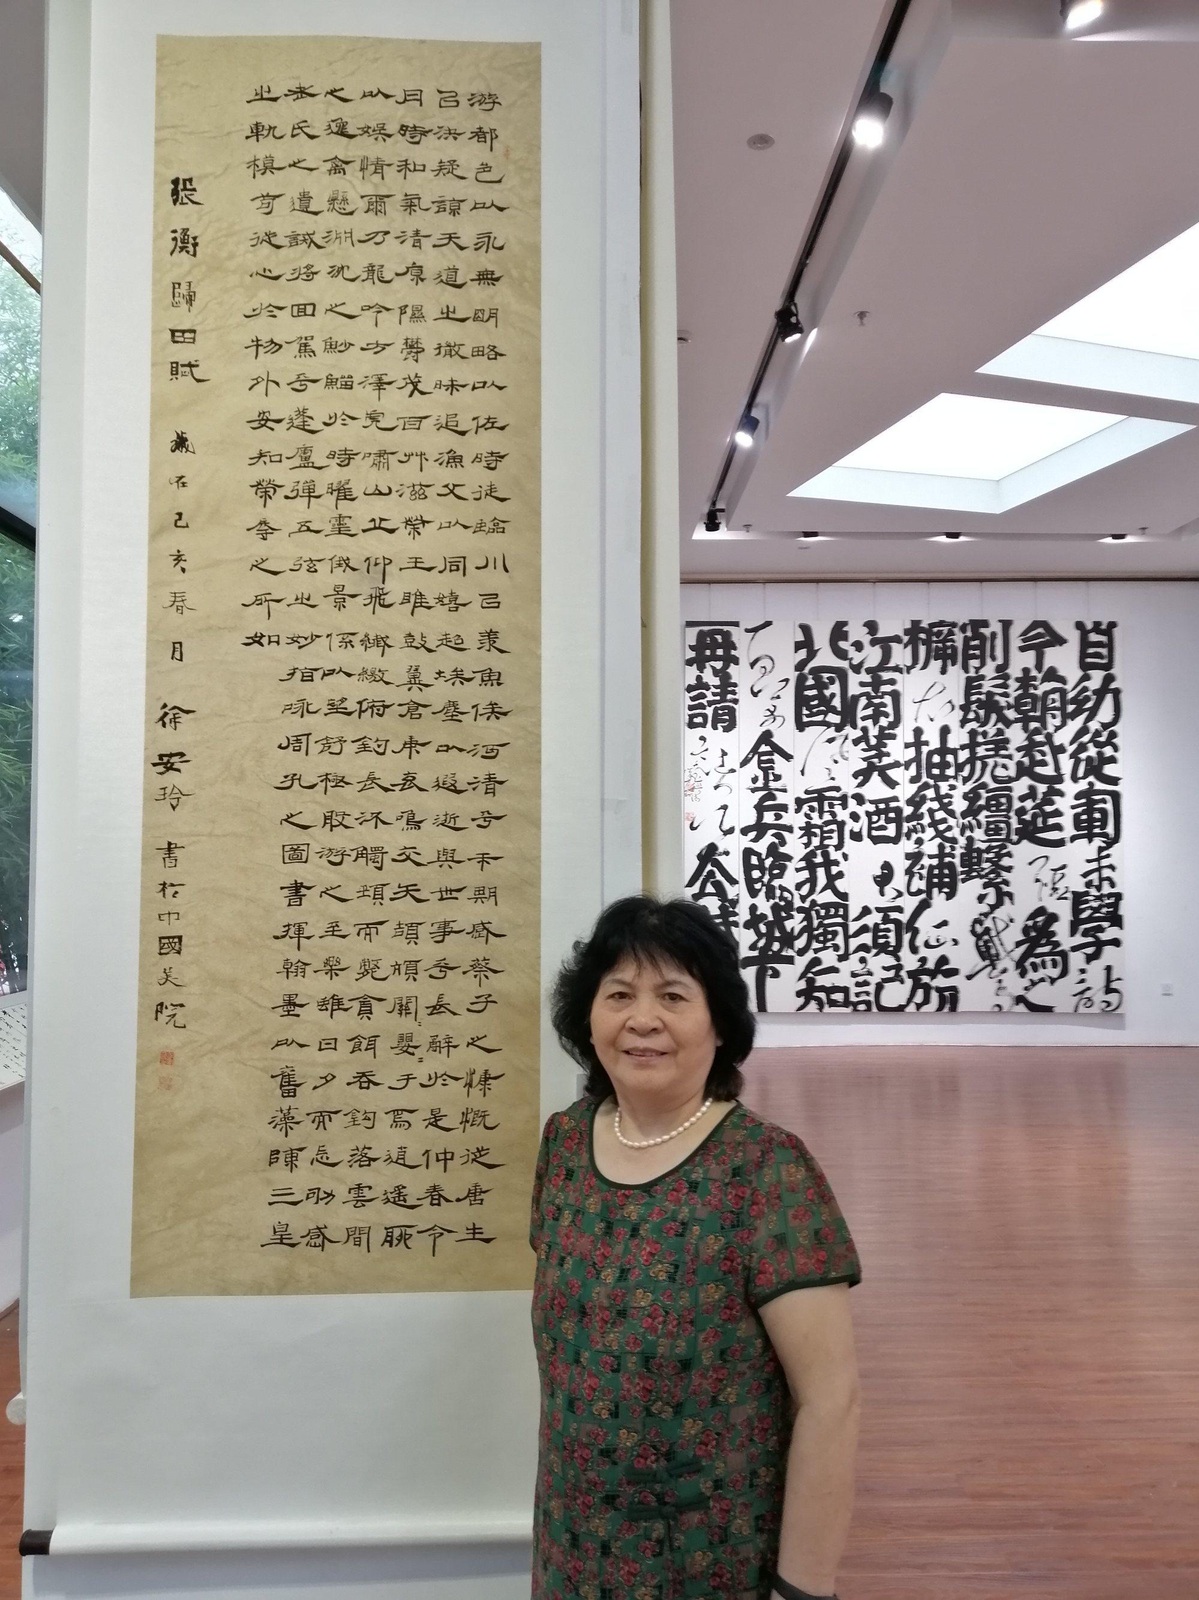 游都邑以永無明略以佐時徒臨川㠯羨魚俟河清乎未期感蔡子之慷慨從唐生
㠯決疑諒天道之微昧追漁父以同嬉超埃塵以遐逝與世事乎長辭於是仲春令
月時和氣清原隰鬱茂百艸滋榮王雎鼓翼倉庚哀鳴交矢頡頏關〻嚶〻于焉逍遙聊
以娛情爾乃龍吟方澤虎嘯山丘仰飛纖繳俯釣長流觸頸而斃貪餌吞鈎落雲間
之逸禽懸淵沈之魦鰡於時曜靈俄景係以望舒極般游之至樂雖日夕而忘劬感
老氏之遺誡將回駕乎蓬廬彈五弦之妙指詠周孔之圖書揮翰墨以奮藻陳三皇
之軌模苟從心於物外安知榮辱之所如
張衡歸田賦 歲在己亥春月 徐安玲 書於中國美院
自幼從軍未學詩
今朝赴筵強爲之
削髮搓繮繫戰馬
抽綫補征旂
江南美酒君須記
北國風霜我獨知
金兵臨城下
再請